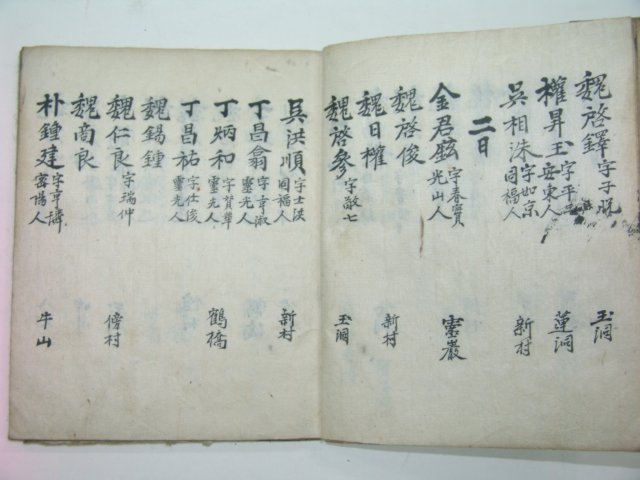 魏啓鐸 字子 玉洞
權昇玉 字平 安東人 蓮洞
吳相洙 字如京 同福人 新村
二日
金君鉉 字春寶 光山人 靈巖
魏啓俊
魏日權 新村
魏啓參 字敬七 玉洞
吳洪順 字士汝 同福人 新村
丁昌翕 字章淑 靈光人
丁炳和 字賛華 靈光人 鶴橋
丁昌祐 字仕俊 靈光人
魏錫鍾
魏仁良 字瑞仲 傍村
魏商良
朴鍾建 字 密陽人 牛山